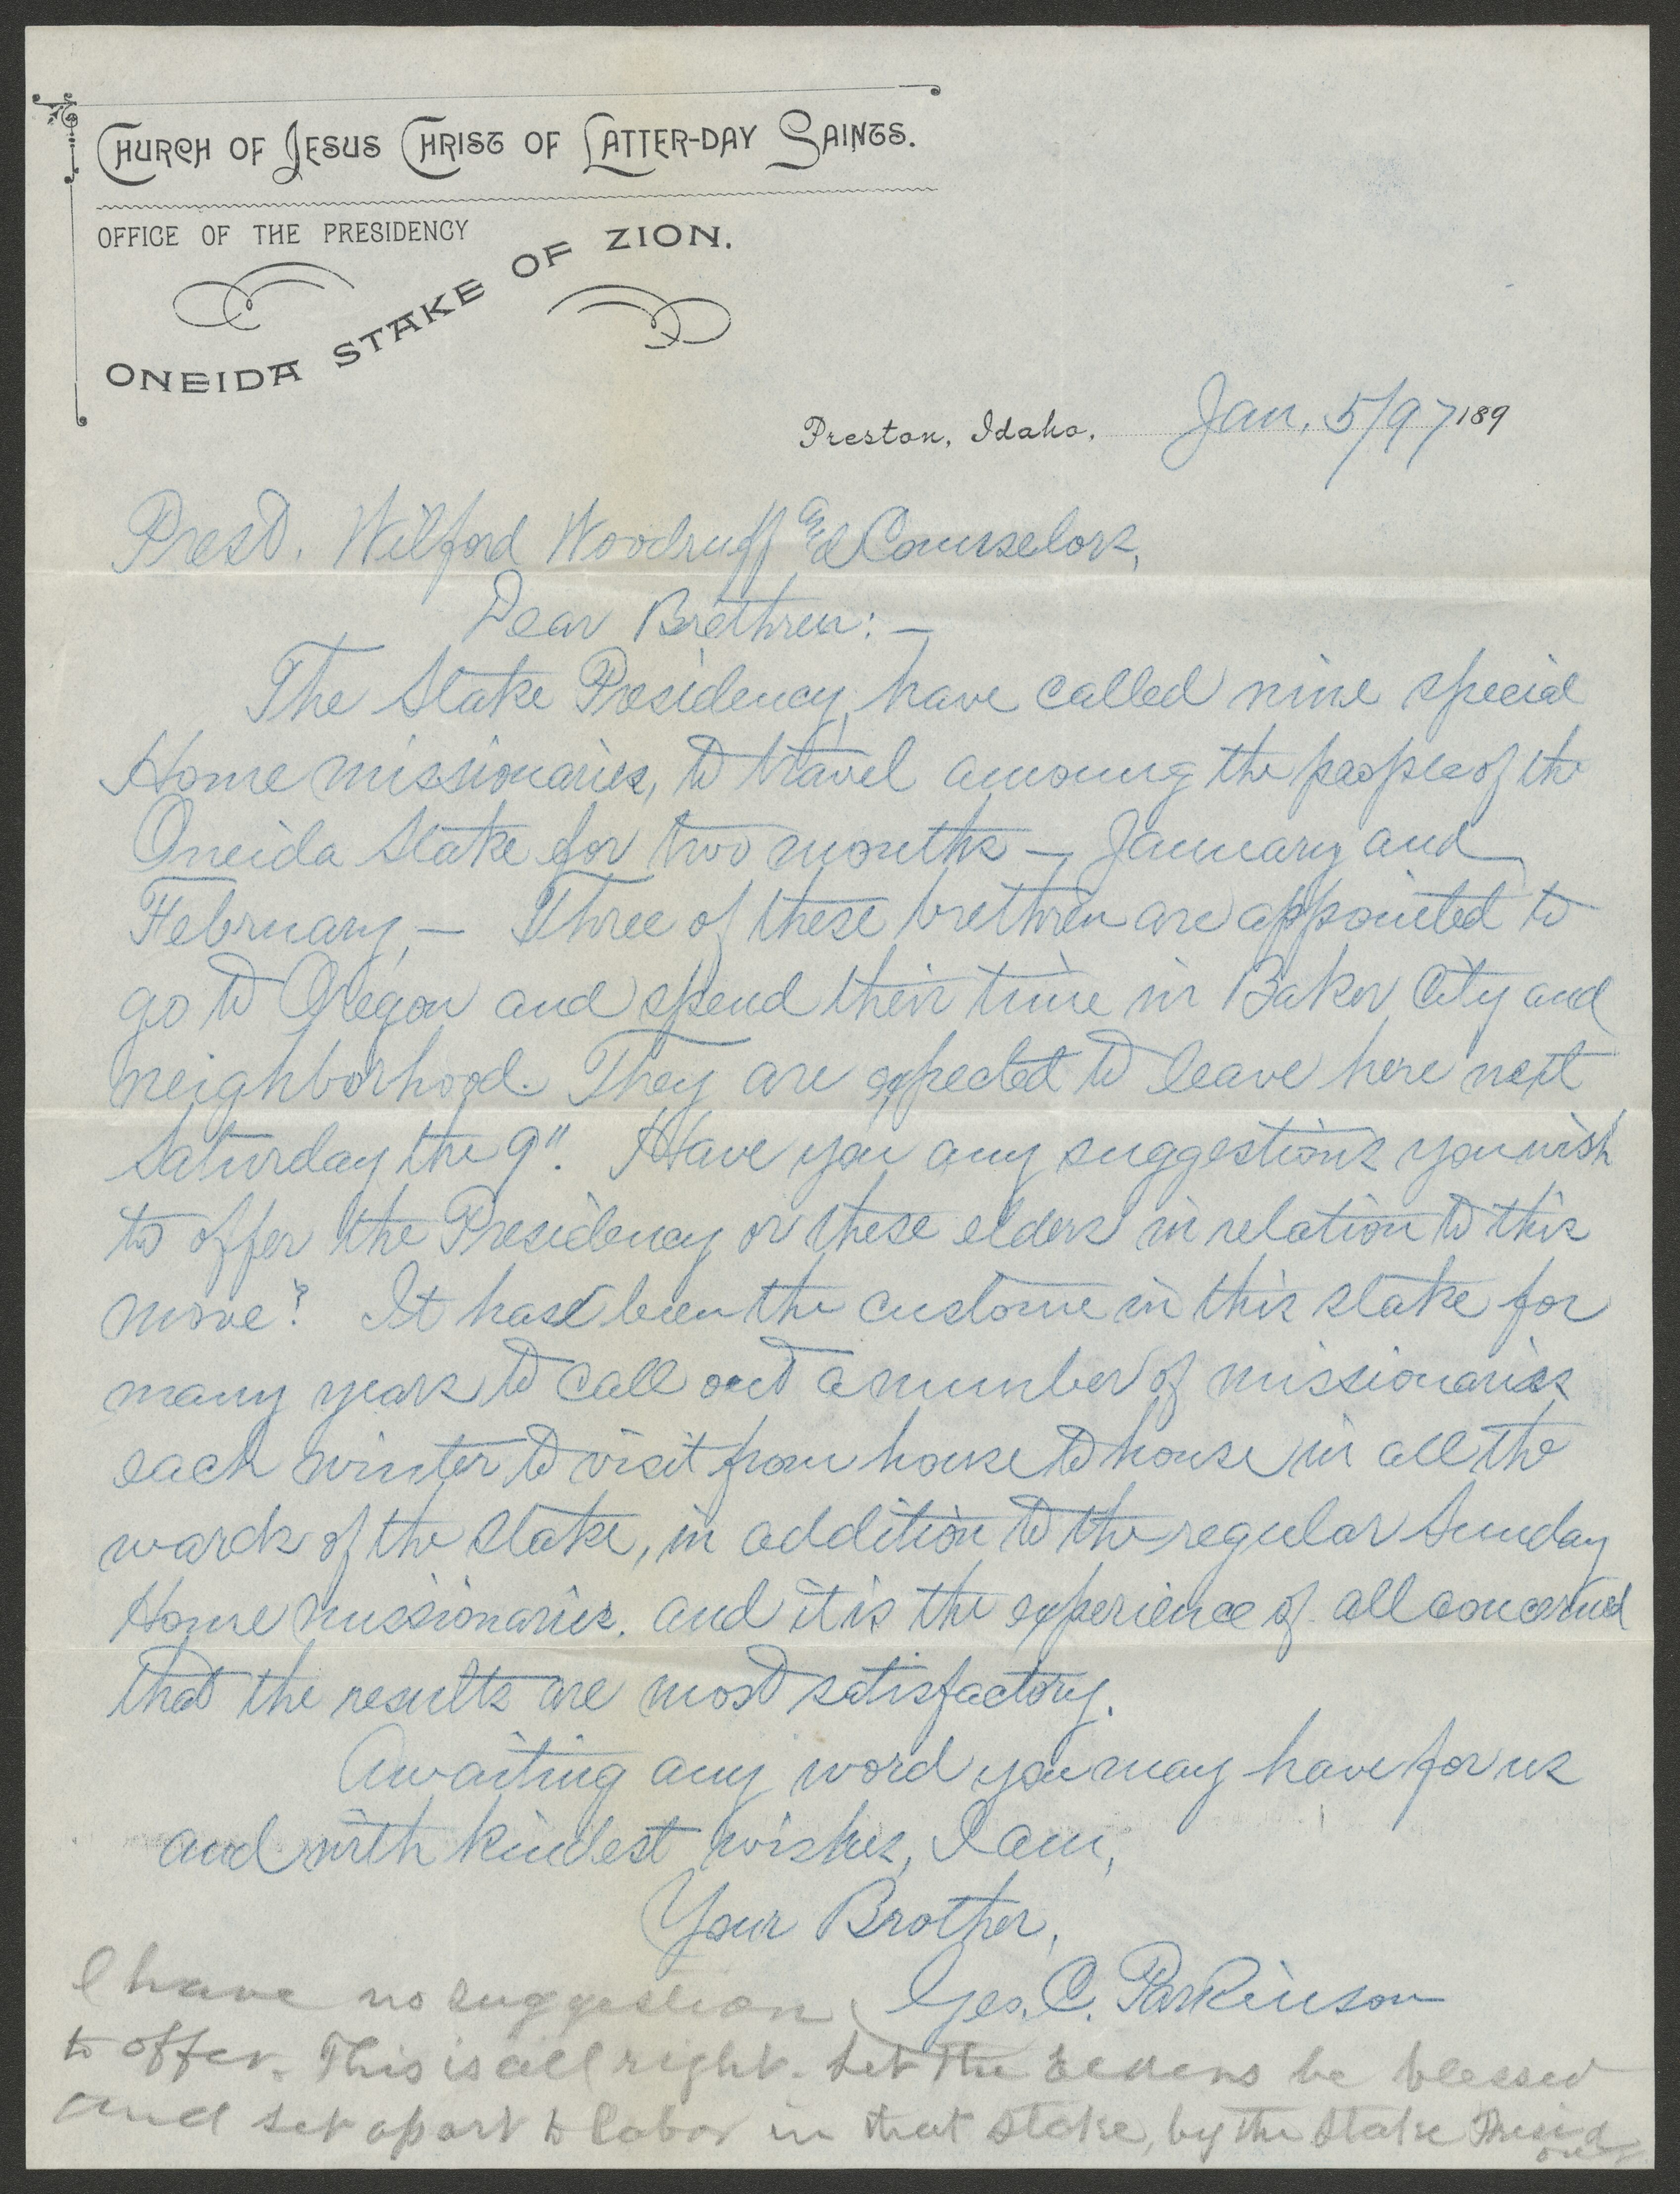 CHURCH OF JESUS CHRIST OF LATTER-DAY SAINTS.
OFFICE OF THE PRESIDENCY
ONEIDA STAKE OF ZION.
Preston, Idaho, Jan. 5/97 189
Prest. Wilford Woodruff and Counselors,
Dear Brethren:—
The Stake Presidency, have called nine special
Home missionaries, to travel among the people of the
Oneida Stake for two months — January and
February, — Three of these brethren are appointed to
go to Oregon and spend their time in Baker City and
neighborhood. They are expected to leave here next
Saturday the 9". Have you any suggestions you wish
to offer the Presidency or these elders in relation to this
move? It has been the custome in this stake for
many years to call out a number of missionaries
each winter to visit from house to house in all the
wards of the Stake, in addition to the regular Sunday
Home missionaries. and it is the experience of all concerned
that the results are most satisfactory.
Awaiting any word you may have for us
and with kindest wishes, I am,
Your Brother,
Geo. C. Parkinson
I have no suggestion
to offer. This is all right. Let the Elders be blessed
and set apart to labor in that Stake, by the Stake